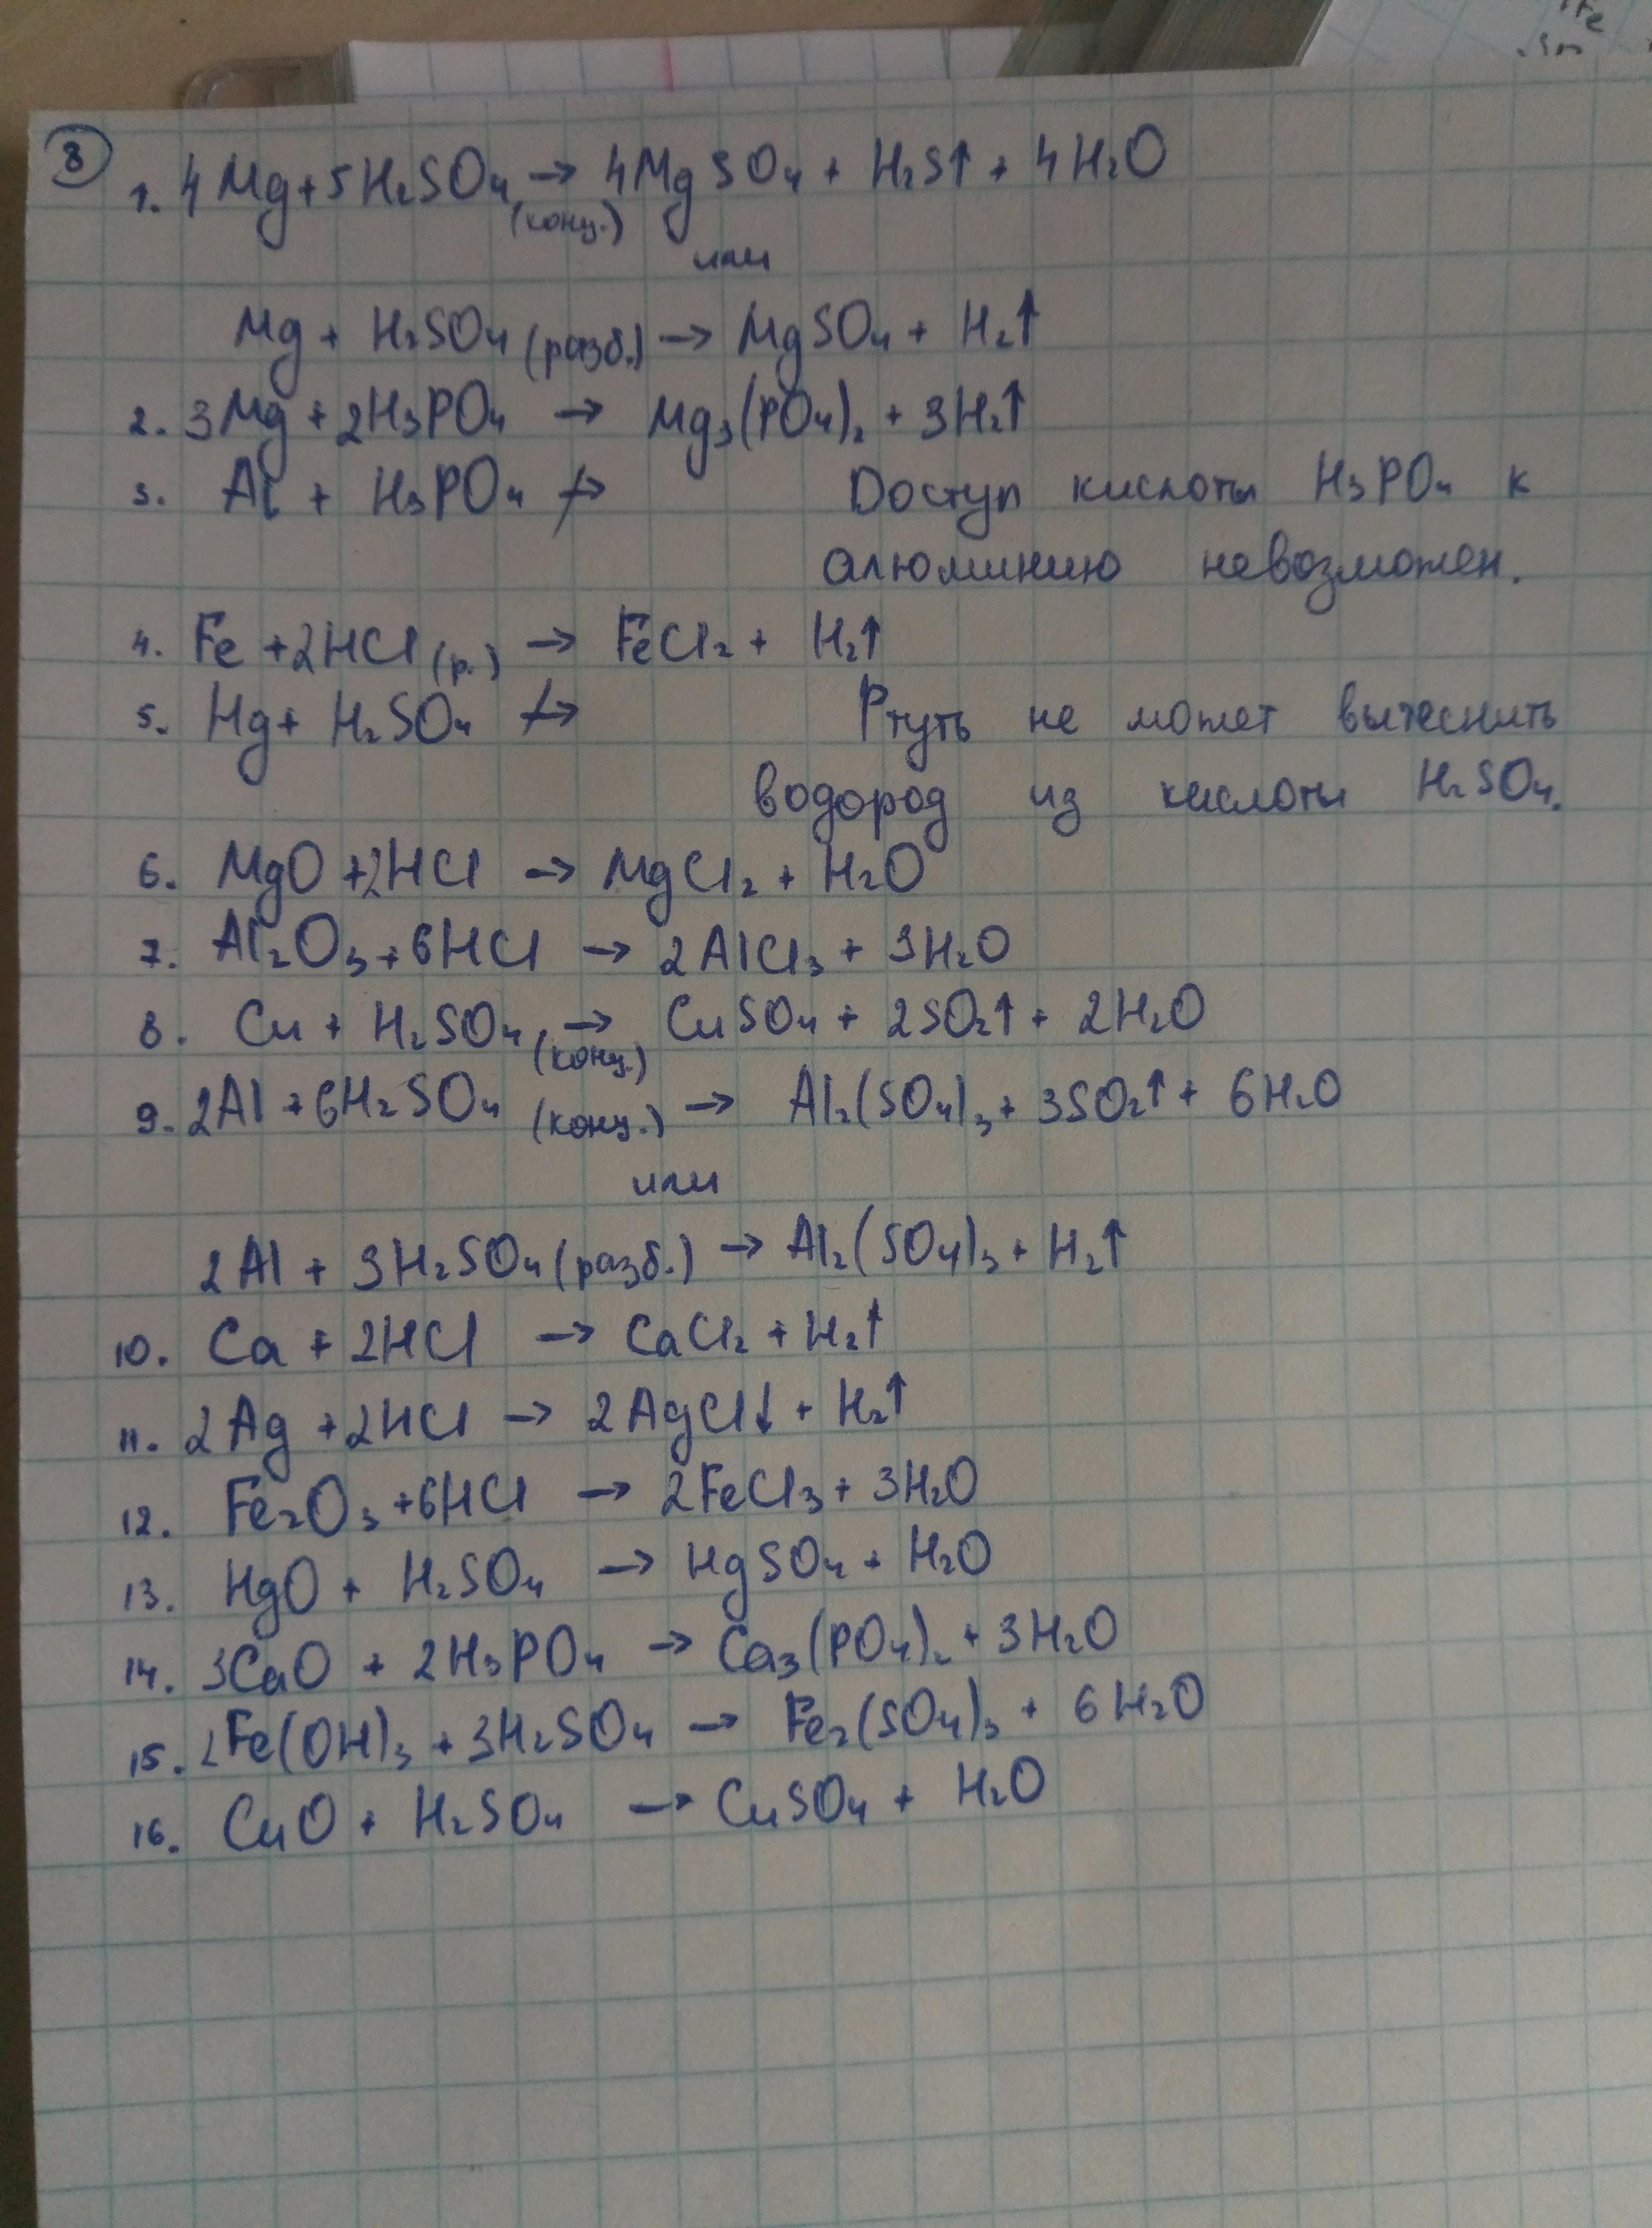 8
1. 4Mg+5H₂SO₄ (конц.) → 4MgSO₄ + H₂S↑ + 4H₂O
или
Mg + H₂SO₄ (разб.) → MgSO₄ + H₂↑
2. 3Mg + 2H₃PO₄ → Mg₃(PO₄)₂ + 3H₂↑
3. Al + H₃PO₄ ↛ Доступ кислоты H₃PO₄ к
алюминию невозможен.
4. Fe + 2HCl (р.) → FeCl₂ + H₂↑
5. Hg + H₂SO₄ ↛ Ртуть не может вытеснить
водород из кислоты H₂SO₄.
6. MgO + 2HCl → MgCl₂ + H₂O
7. Al₂O₃ + 6HCl → 2AlCl₃ + 3H₂O
8. Cu + H₂SO₄ (конц.) → CuSO₄ + 2SO₂↑ + 2H₂O
9. 2Al + 6H₂SO₄ (конц.) → Al₂(SO₄)₃ + 3SO₂↑ + 6H₂O
или
2Al + 3H₂SO₄ (разб.) → Al₂(SO₄)₃ + H₂↑
10. Ca + 2HCl → CaCl₂ + H₂↑
11. 2Ag + 2HCl → 2AgCl↓ + H₂↑
12. Fe₂O₃ + 6HCl → 2FeCl₃ + 3H₂O
13. HgO + H₂SO₄ → HgSO₄ + H₂O
14. 3CaO + 2H₃PO₄ → Ca₃(PO₄)₂ + 3H₂O
15. 2Fe(OH)₃ + 3H₂SO₄ → Fe₂(SO₄)₃ + 6H₂O
16. CuO + H₂SO₄ → CuSO₄ + H₂O